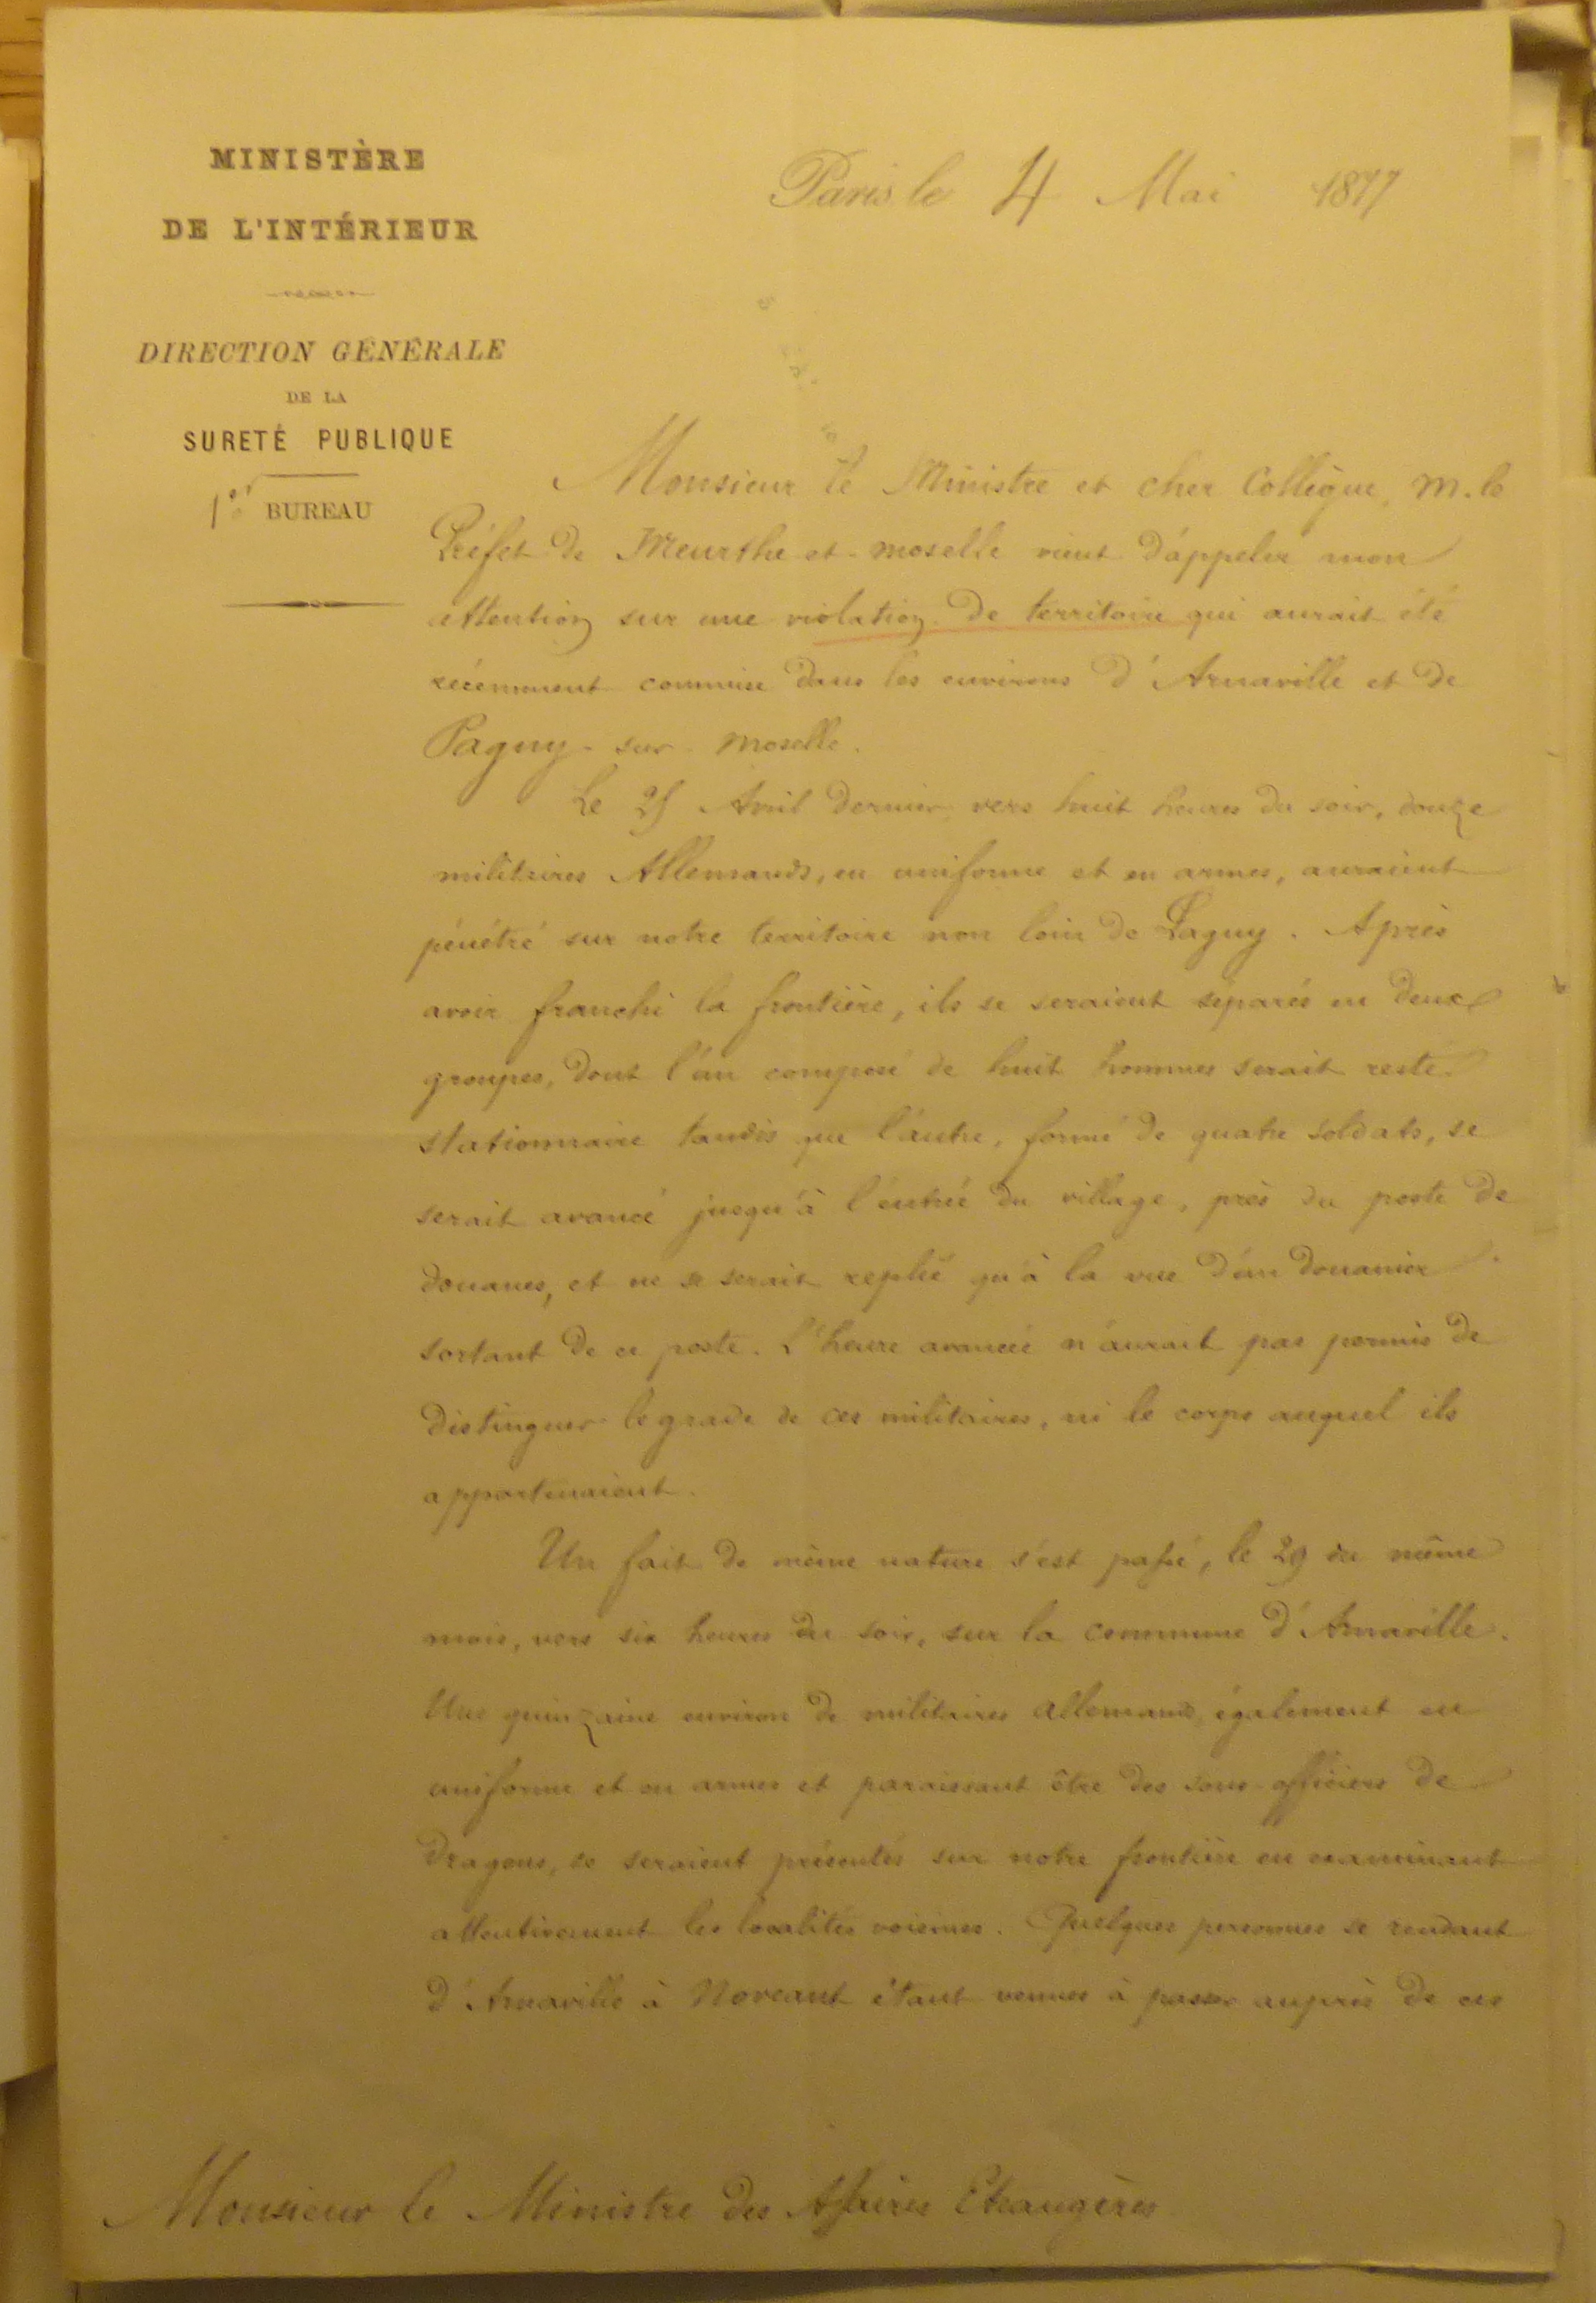 MINISTÈRE
DE L'INTÉRIEUR
DIRECTION GÉNÉRALE
DE LA
SURETÉ PUBLIQUE
1er BUREAU
Paris le 4 Mai 1877
Monsieur le Ministre et cher Collègue, M. le
Préfet de Meurthe et-Moselle vient d'appeler mon
attention sur une violation de territoire qui aurait été
récemment commise dans les environs d'Arnaville et de
Pagny-sur-Moselle.
Le 25 Avril dernier vers huit heures du soir, douze
militaires Allemands, en uniforme et en armes, auraient
pénétré sur notre territoire non loin de Pagny. Après
avoir franchi la frontière, ils se seraient séparés en deux
groupes, dont l'un composé de huit hommes serait resté
stationnaire tandis que l'autre, formé de quatre soldats, se
serait avancé jusqu'à l'entrée du village, près du poste de
douanes, et ne se serait replié qu'à la vue d'un douanier
sortant de ce poste. L'heure avancée n'aurait pas permis de
distinguer le grade de ces militaires, ni le corps auquel ils
appartenaient.
Un fait de même nature s'est passé, le 29 du même
mois, vers six heures du soir, sur la commune d'Arnaville.
Une quinzaine environ de militaires allemands, également en
uniforme et en armes et paraissant être des sous-officiers de
dragons, se seraient présentés sur notre frontière en examinant
attentivement les localités voisines. Quelques personnes se rendant
d'Arnaville à Noveant étant venues à passer auprès de ces
Monsieur le Ministre des Affaires Etrangères